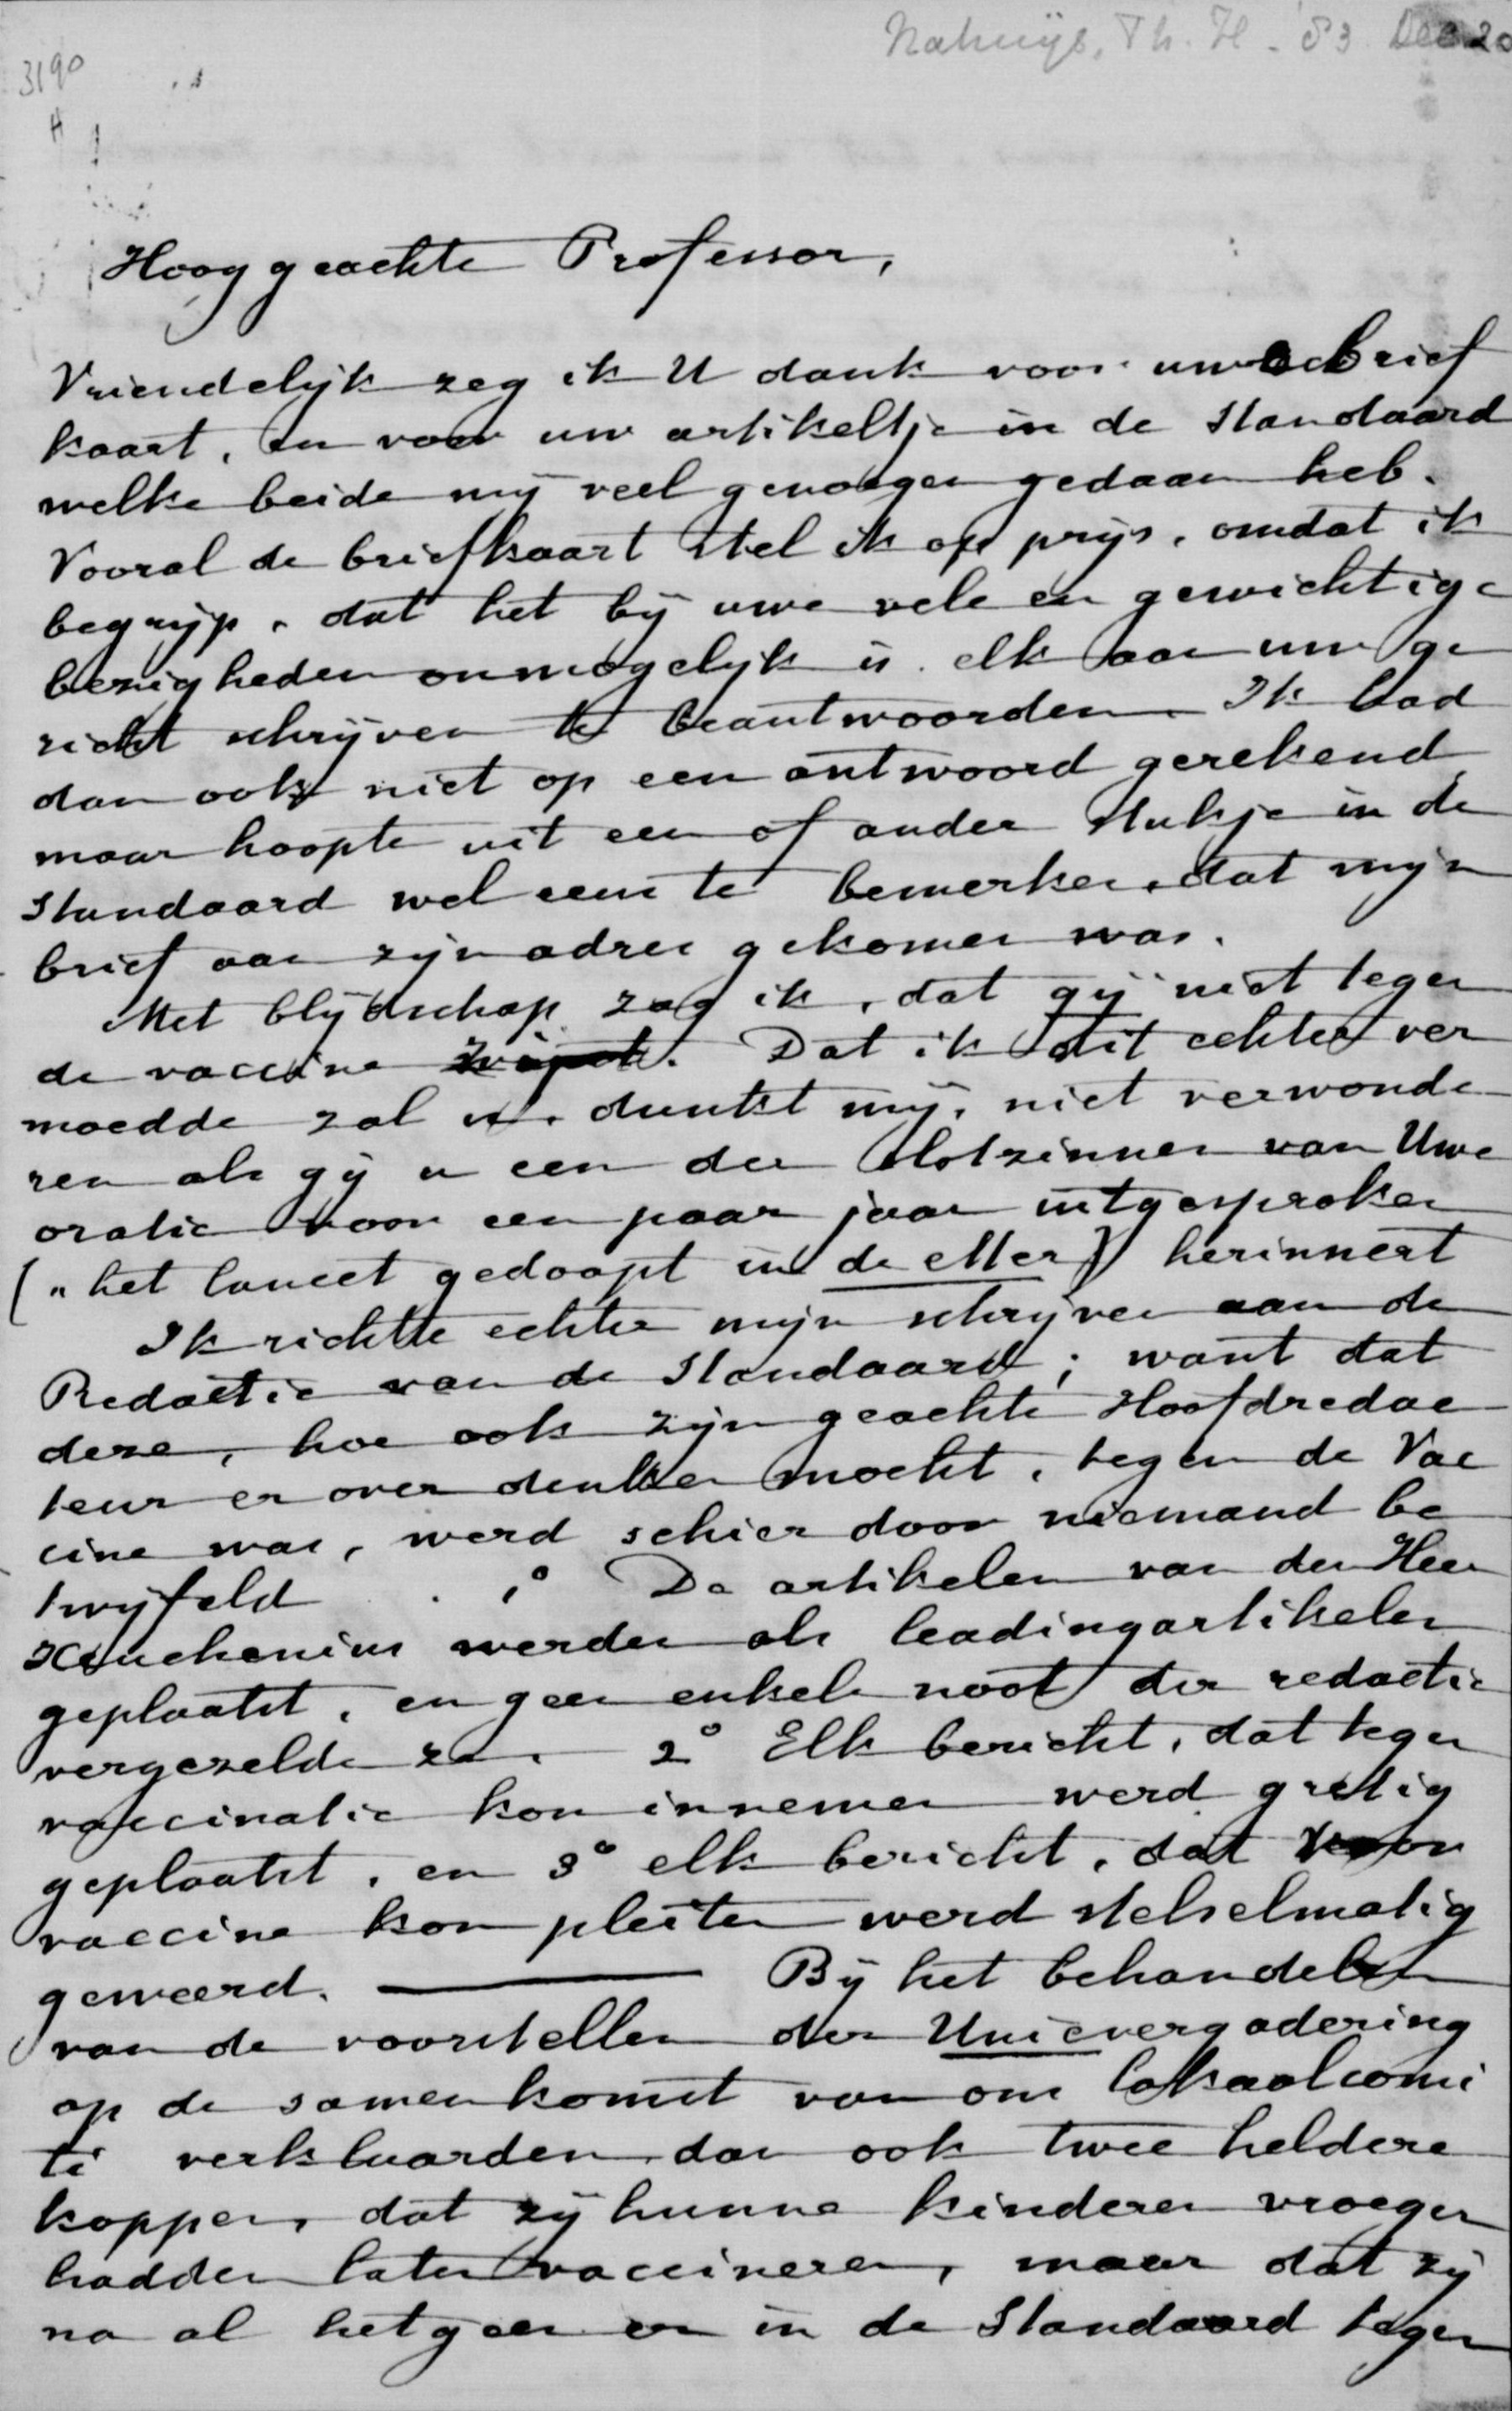 Nahuijs, Th. H - 83 Dec 20
3190
Hooggeachte Professor,
Vriendelijk zeg ik U dank voor uwe brief
kaart, en voor uw artikeltje in de Standaard
welke beide mij veel genoegen gedaan heb.
Vooral de briefkaart stel ik op prijs, omdat ik
begrijp, dat het bij uwe vele en gewichtige
bezigheden onmogelijk is elk aan uw ge
richt schrijven te beantwoorden. Ik had
dan ook niet op een antwoord gerekend
maar hoopte uit een of ander stukje in de
Standaard wel eens te bemerken, dat mijn
brief aan zijn adres gekomen was.
Met blijdschap zag ik, dat gij niet tegen
de vaccine. Dat ik dit echter ver
moedde zal u, dunkt mij, niet verwonde
ren als gij u een der slotzinnen van Uwe
oratie voor een paar jaar uitgesproken
("het lancet gedoopt in de etter) herinnert
Ik richtte echter mijn schrijven aan de
Redactie van de Standaard; want dat
deze, hoe ook zijn geachte Hoofdredac
teur er over denken mocht, tegen de Vac
cine was, werd schier door niemand be
twijfeld. 1° De artikelen van den Heer
Keuchenius werden als leadingartikelen
geplaatst, en geen enkele noot der redactie
vergezelde ze. 2° Elk bericht, dat tegen
vaccinatie kon innemen werd gretig
geplaatst, en 3° elk bericht, dat voor
vaccine kon pleiten werd stelselmatig
geweerd. — Bij het behandelen
van de voorstellen der Unievergadering
op de samenkomst van ons lokaalcomi
té verklaarden dan ook twee heldere
koppen, dat zij hunne kinderen vroeger
hadden laten vaccineren, maar dat zij
na al hetgeen er in de Standaard tegen